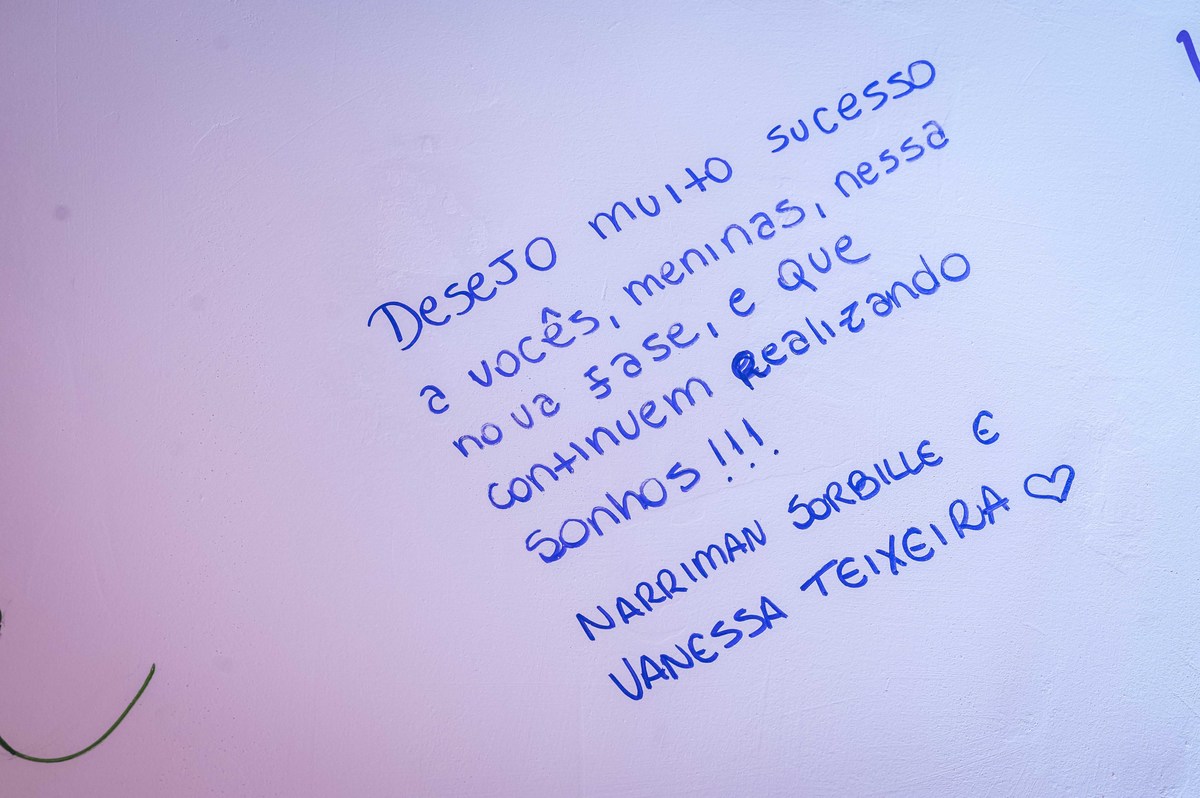 Desejo muito sucesso
a vocês, meninas, nessa
nova fase, e que
continuem realizando
sonhos!!!
NARRIMAN SORBILLE E
VANESSA TEIXEIRA ♡